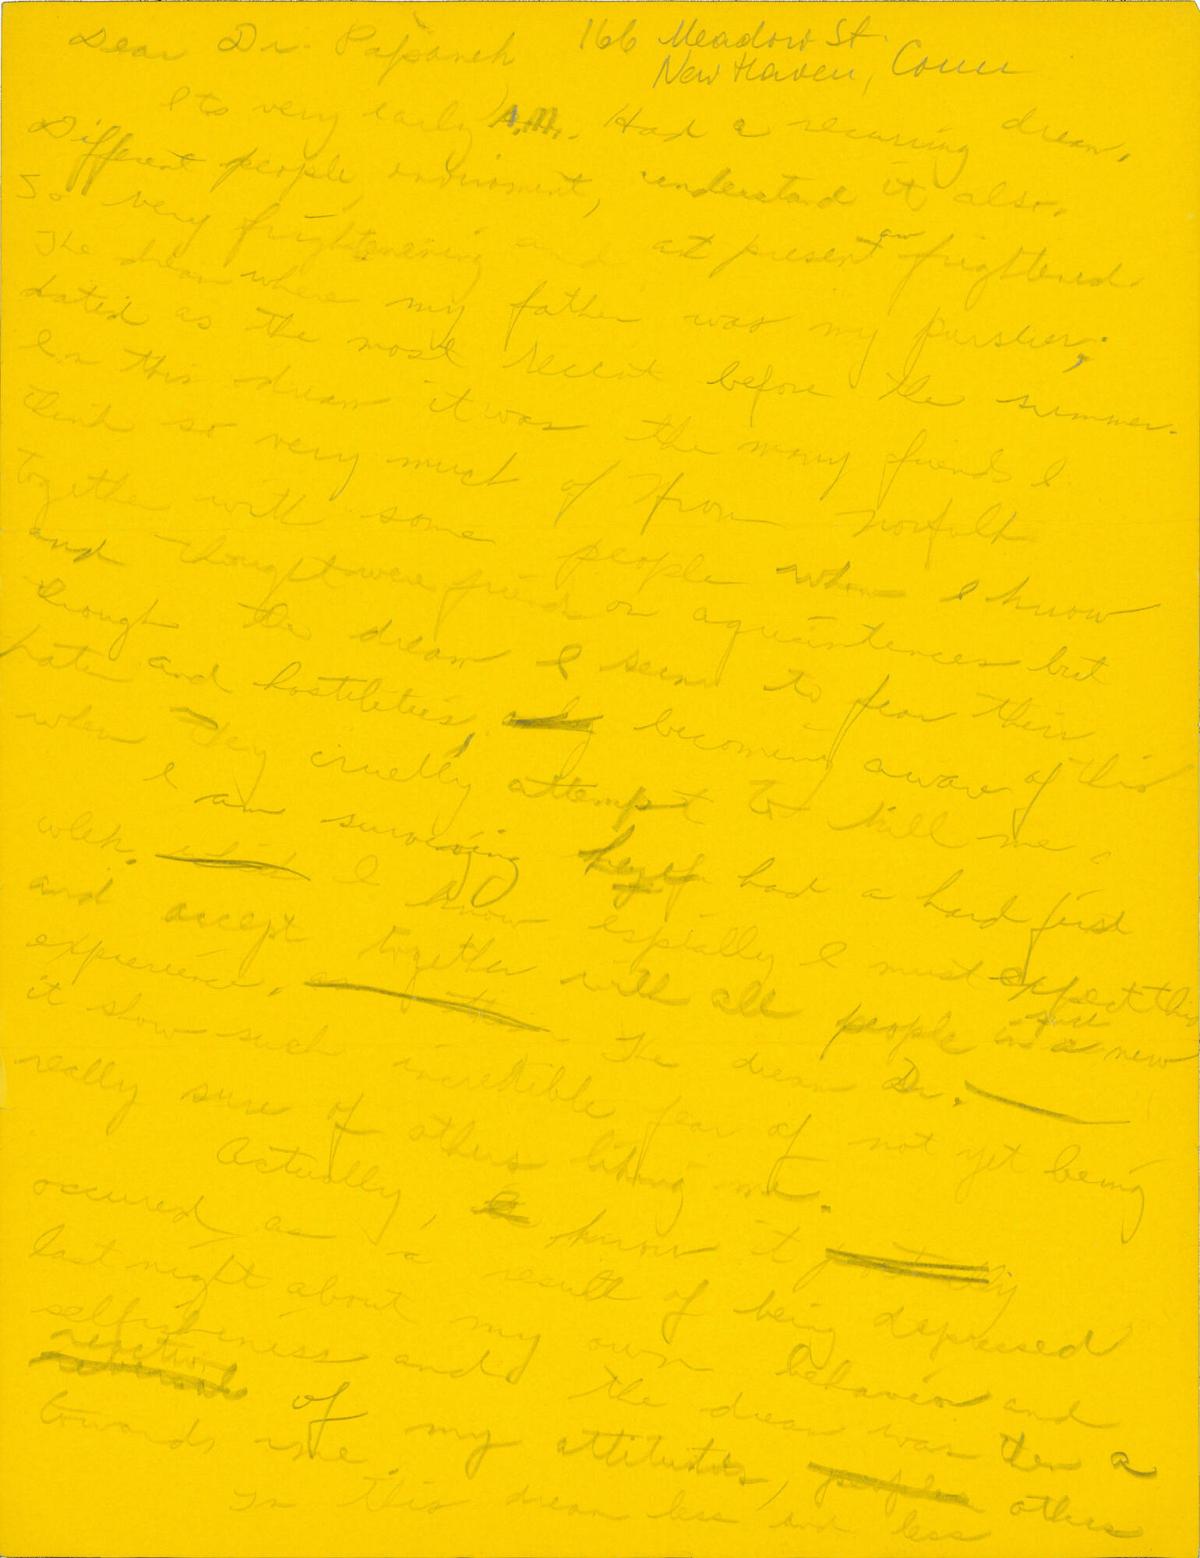 Dear Dr. Papanek
166 Meadow St.
New Haven, Conn
Its very early A.M. Had a recurring dream.
Different people, enviroment, understand it also.
So very frightening and at present am frightened.
The dream where my father was my pursuer;
dated as the most recent before the summer.
In this dream it was the many friends I
think so very much of from Norfolk
together with some people whom I know
and thought were friends or aquaintences but
through the dream I seem to fear their
hate and hostilities, becoming aware of this
when they cruelly attempt to kill me.
I am surviving had a hard first
week. I know espially I must expect this
and accept together with all people in a new
experience. The dream Dr.
it show such incredible fear of not yet being
really sure of others liking me.
Actually, know it
occured as a result of being depressed
last night about my own behavior and
selfishness and the dream was then a
reaction of my attitudes, others
towards me.
In this dream less and less